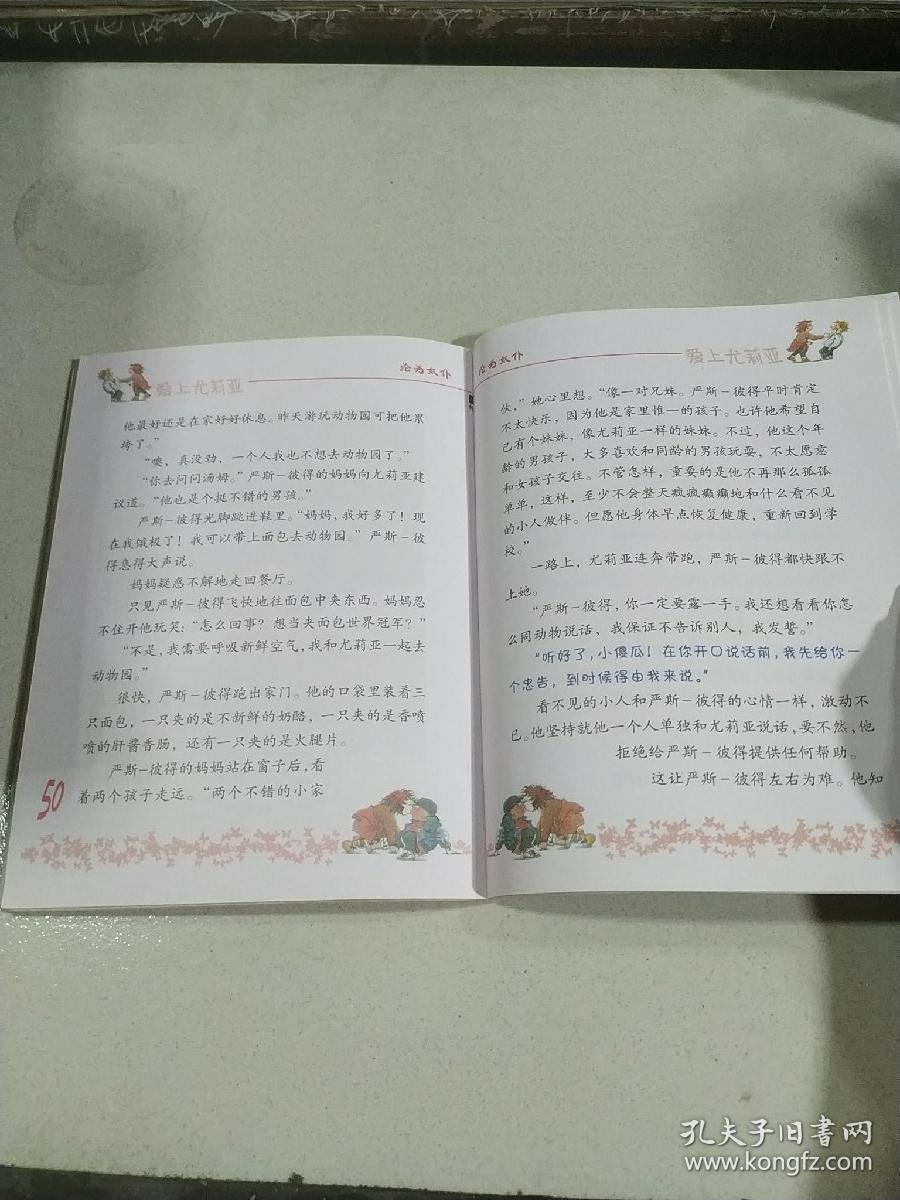 爱上尤莉亚
沦为奴仆
他最好还是在家好好休息。昨天游玩动物园可把他累
垮了。”
“噢，真没劲，一个人我也不想去动物园了。”
“你去问问汤姆。”严斯-彼得的妈妈向尤莉亚建
议道。“他也是个挺不错的男孩。”
严斯-彼得光脚跳进鞋里。“妈妈，我好多了！现
在我饿极了！我可以带上面包去动物园。”严斯-彼
得急得大声说。
妈妈疑惑不解地走回餐厅。
只见严斯-彼得飞快地往面包中夹东西。妈妈忍
不住开他玩笑：“怎么回事？想当夹面包世界冠军？”
“不是，我需要呼吸新鲜空气，我和尤莉亚一起去
动物园。”
很快，严斯-彼得跑出家门。他的口袋里装着三
只面包，一只夹的是不新鲜的奶酪，一只夹的是香喷
喷的肝酱香肠，还有一只夹的是火腿片。
严斯-彼得的妈妈站在窗子后，看
着两个孩子走远。“两个不错的小家
50
沦为奴仆
爱上尤莉亚
伙，”她心里想。“像一对兄妹。严斯-彼得平时肯定
不太快乐，因为他是家里惟一的孩子。也许他希望自
己有个妹妹，像尤莉亚一样的妹妹。不过，他这个年
龄的男孩子，大多喜欢和同龄的男孩玩耍，不太愿意
和女孩子交往。不管怎样，重要的是他不再那么孤孤
单单，这样，至少不会整天疯疯癫癫地和什么看不见
的小人做伴。但愿他身体早点恢复健康，重新回到学
校。”
一路上，尤莉亚连奔带跑，严斯-彼得都快跟不
上她。
“严斯-彼得，你一定要露一手。我还想看看你怎
么同动物说话，我保证不告诉别人，我发誓。”
“听好了，小傻瓜！在你开口说话前，我先给你一
个忠告，到时候得由我来说。”
看不见的小人和严斯-彼得的心情一样，激动不
已。他坚持就他一个人单独和尤莉亚说话，要不然，他
拒绝给严斯-彼得提供任何帮助。
这让严斯-彼得左右为难。他知
孔夫子旧书网
www.kongfz.com